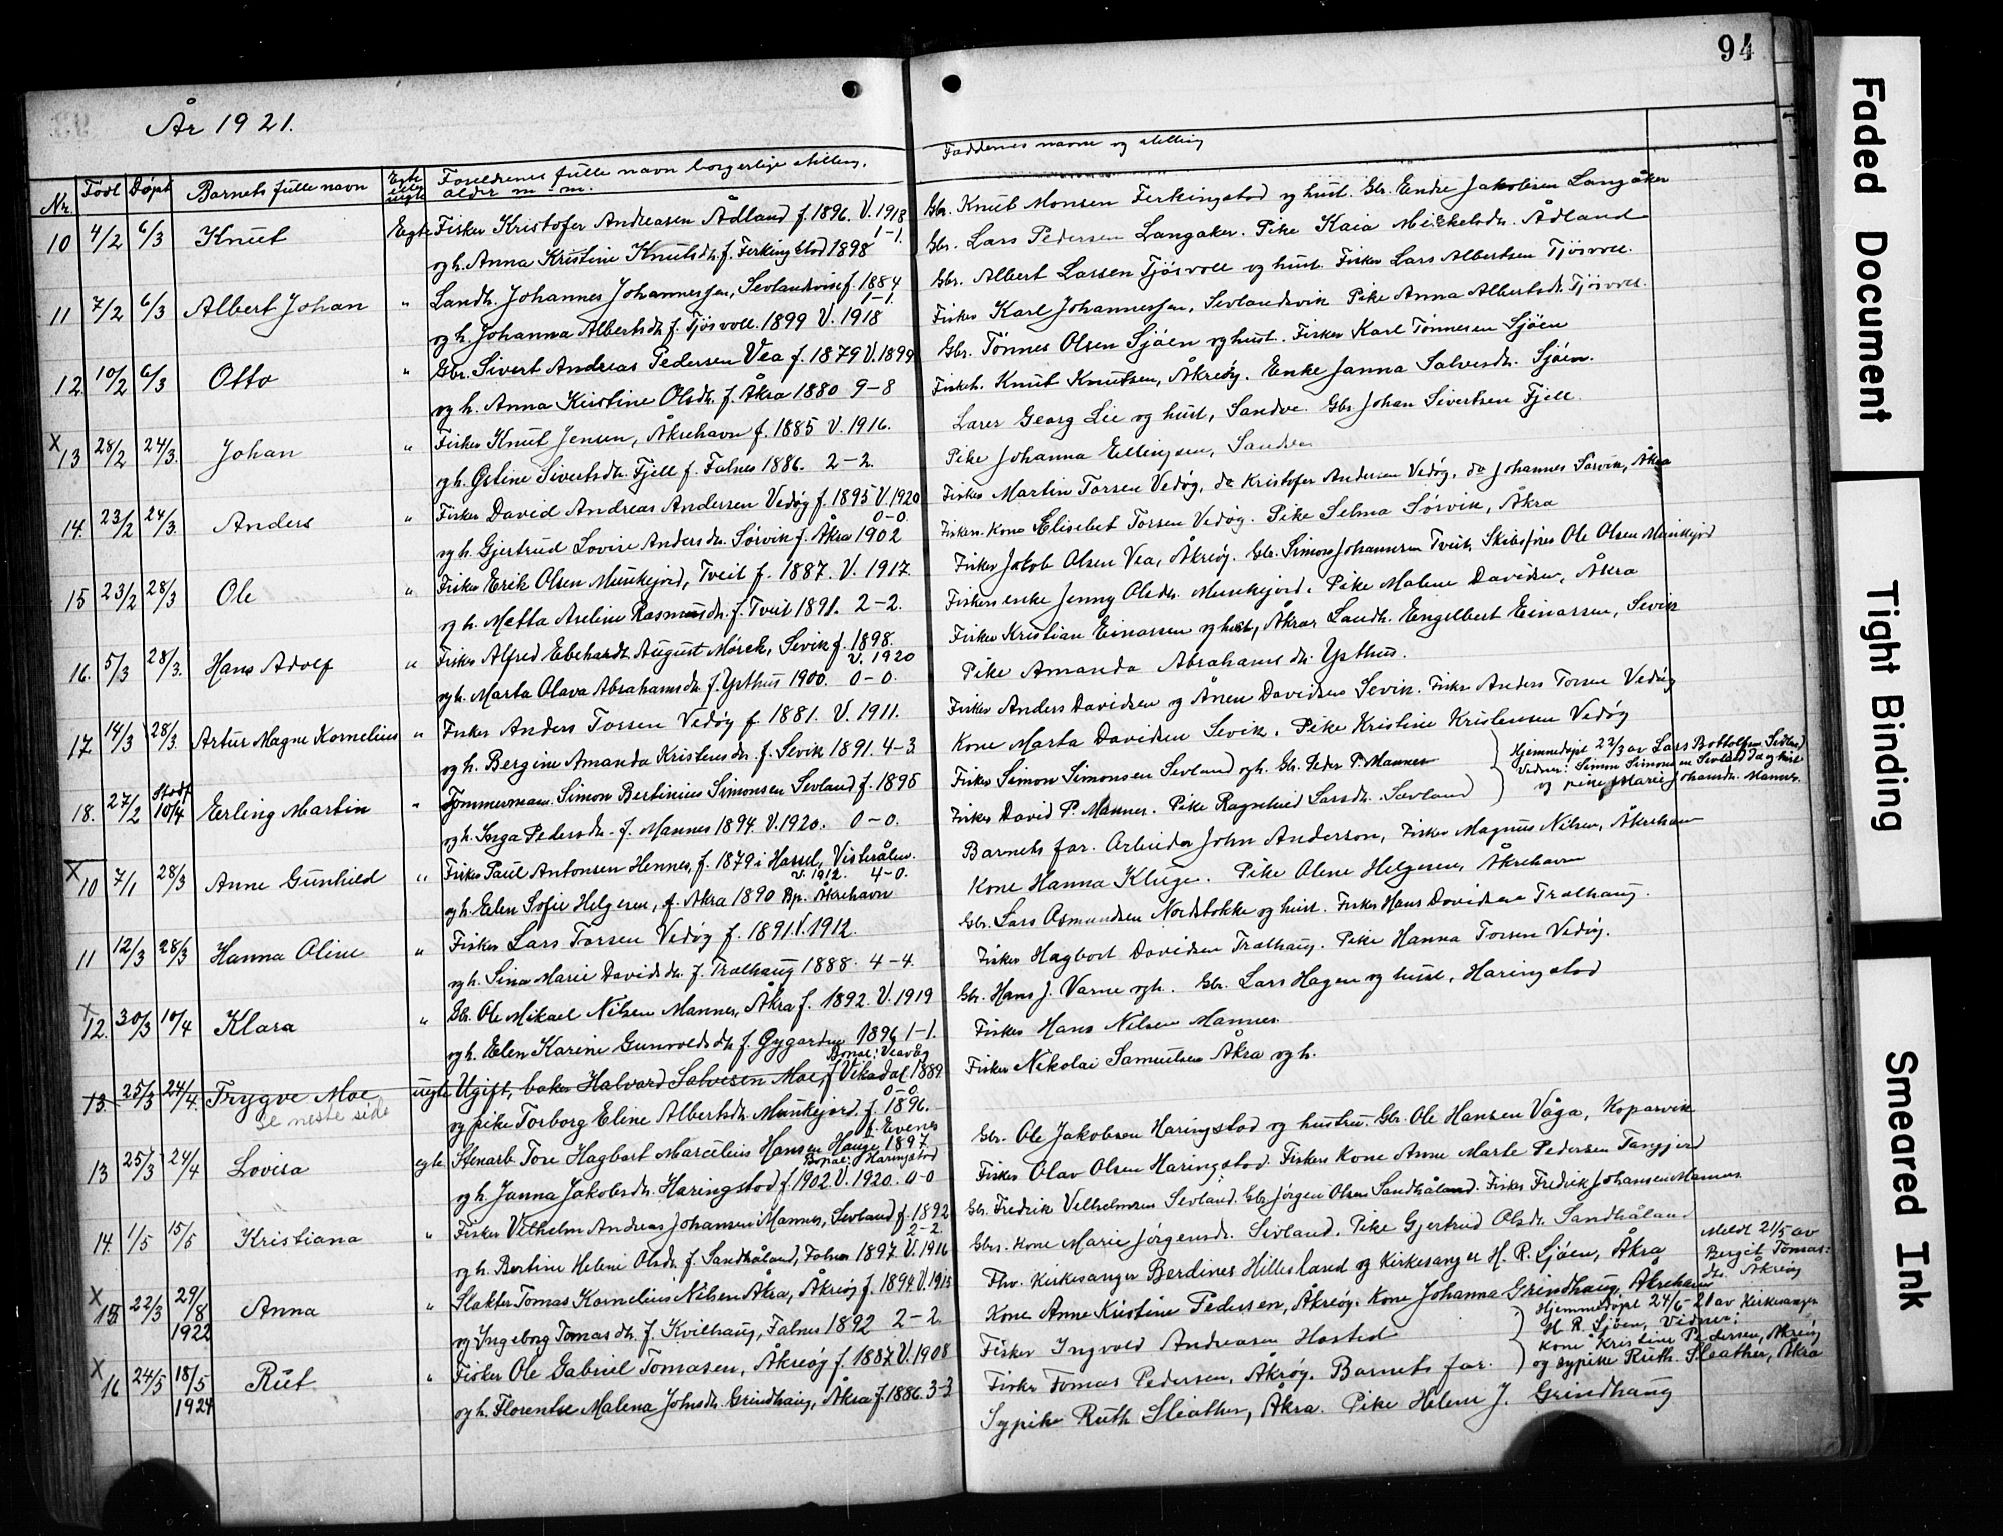 94
År 1921.
Nr. Født Døpt Barnets fulle navn Egte eller uegte Foreldrenes fulle navn borgerlige stilling, alder m-m. Faddernes navne og stilling
10 4/2 6/3 Knut Egte Fisker Kristofer Andreasen Ådland f. 1896. V. 1918 1-1. Gbr. Knut Monsen Ferkingstad og hust. Gbr. Endre Jakobsen Langåker
og h. Anna Kristine Knutsdtr. f. Ferkingstad 1898 Gbr. Lars Pedersen Langaker. Pike Kaia Mickelsdtr. Ådland
11 7/2 6/3 Albert Johan " Landh. Johannes Johannessen, Sevlandsvik f. 1884 1-1. Gbr. Albert Larsen Tjøsvoll og hust. Fisker Lars Albertsen Tjøsvoll.
og h. Johanna Albertsdtr. f. Tjøsvoll. 1899 V. 1918 Fisker Karl Johannessen, Sevlandsvik Pike Anna Albertsdtr. Tjøsvoll.
12. 10/2 6/3 Otto " Gbr. Sivert Andreas Pedersen Vea f. 1879 V. 1899 Gbr. Tønnes Olsen Sjøen og hust. Fisker Karl Tønnesen Sjøen
og h. Anna Kristine Olsdtr. f. Åkra 1880 9-8 Fiskeh. Knut Knutsen, Åkreøy. Enke Janna Salvesdtr. Sjøen.
X 13 28/2 24/3. Johan " Fisker Knut Jensen, Åkrehavn f. 1885 V. 1916. Lærer Georg Lie og hust, Sandve. Gbr. Johan Sivertsen Fjell.
og h. Gstine Sivertsdtr. Fjell f. Falnes 1886. 2-2. Pike Johanna Ellingsen, Sandve
14. 23/2 24/3. Anders " Fisker David Andreas Andersen Vedøy f. 1895 V. 1920 0-0. Fisker Martin Torsen Vedøy, do Kristofer Andersen Vedøy, do Johannes Sørvik, Åkra
og h. Gjertrud Lovise Andersdtr. Sørvik f. Åkra 1902 Fiskers Kone Elisebet Torsen Vedøy. Pike Selma Sørvik, Åkra
15 23/2 28/3 Ole " Fisker Erik Olsen Munkejord, Tveit f. 1887. V. 1917. Fisker Jakob Olsen Vea, Åkreøy. Gbr. Simon Johannesen Tveit, Skibsfører Ole Olsen Munkejord
og h. Metta Aseline Rasmusdtr. f. Tveit 1891. 2-2. Fiskers enke Jenny Olsdtr. Munkejord. Pike Malene Davidsen, Åkra
16. 5/3 28/3. Hans Adolf " Fisker Alfred Ebehardt August Mørck, Sevik f. 1898. V. 1920 Fisker Kristian Einarsen og hust, Åkrar Landh. Engelbert Einarsen, Sevik
og h. Marta Olava Abrahamsdtr. f. Ysthus 1900. 0-0. Pike Amanda Abrahamsdtr. Ysthus.
17. 14/3 28/3. Artur Magne Kornelius " Fisker Anders Torsen Vedøy f 1881. V. 1911. Fisker Anders Davidsen og Ånen Davidsen Sevik. Fisker Anders Torsen Vedøy
og h. Bergine Amanda Kristensdtr. f. Sevik 1891. 4-3. Kone Marta Davidsen Sevik. Pike Kristine Kristensen Vedøy
18. 27/2 Stadf. 10/4 Erling Martin " Tømmermann Simon Bertinius Simonsen Sevland f. 1895 Fisker Simon Simonsen Sevland og h. Gbr. Peder P. Mannes Hjemmedøpt 22/3 av Lars Bottolfsen Sevland
Vidner: Simon Simonsen Sevland Do og hust
og pike Marie Johansdtr. Mannes.
og h. Inga Pedersdtr. f. Mannes 1894. V. 1920. 0-0. Fisker David P. Mannes. Pike Ragnhild Larsdtr. Sevland
X 10 7/1 28/3 Anne Gunhild " Fisker Paul Antonsen Hennes, f. 1879 i Hassel, Visterålen. V. 1912. 4-0. Barnets far. Arbeider John Anderson, Fisker Magnus Nilsen, Åkrehavn
og h. Elen Sofie Helgesen, f. Åkra 1890 Bp. Åkrehavn Kone Hanna Kluge. Pike Olene Helgesen, Åkrehavn
11 12/3 28/3 Hanna Oline " Fisker Lars Torsen Vedøy f. 1891 V. 1912. Gbr. Lars Asmundsen Nordstokke og hust. Fisker Hans Davidsen Trælhaug.
og h. Sina Marie Davidsdtr. f. Trælhaug 1888. 4-4. Fisker Hagbart Davidsen Trælhaug. Pike Hanna Torsen Vedøy.
X 12. 30/3 10/4 Klara " Gbr. Ole Mikael Nilsen Mannes, Åkra f. 1892. V. 1919 Gbr. Hans J. Varne og h. Gbr. Lars Hagen og hust, Haringstad
og h. Elen Karine Gunvoldsdtr. f. Gygarden 1896 1-1. Fisker Hans Nilsen Mannes
13. 25/3 24/4. Trygve Moe uegte Ugift, baker Halvard Salvesen Moe, f. Vikadal. 1889. Bopæl: Veavåg 0-0 Fisker Nikolai Samuelsen Åkra og h.
Se neste side
og pike Torborg Eline Albertsdtr. Munkejord. f. 1896.
13 25/3 24/4 Lovisa egte Stenarb. Tore Hagbart Marcelius Hansen Hauge f. Evenes 1897 Bopæl: Haringstad Gbr. Ole Jakobsen Haringstad og hustru. Gbr. Ole Hansen Våga, Kopervik
og h. Janna Jakobsdtr. Haringstad f. 1902. V. 1920. 0-0 Fisker Olav Olsen Haringstad. Fiskers Kone Anne Marte Pedersen Tangjerd
14. 1/5 15/5 Kristiana " Fisker Vilhelm Andreas Johansen Mannes, Sevland f. 1892 2-2. Gbr. Fredrik Velhelmsen Sevland. Gbr. Jørgen Olsen Sandhåland. Fisker Fredrik Johansen Mannes.
og h. Bertine Helene Olsdtr. f. Sandhåland, Falnes 1897. V. 1916 Gbrs. Kone Marie Jørgensdtr. Sevland. Pike Gjertrud Olsdtr. Sandhåland
X 15 22/3 29/8 1922 Anna " Slakter Tomas Kornelius Nilsen Åkra, Åkreøy f. 1894 V. 1915 Fhv. Kirkesanger Berdines Hillesland og Kirkesanger H. R. Sjøen, Åkra Meldt 21/5 av
Berget Tomas:
dtr. Åkreøy
og Ingeborg Tomasdtr. f. Kvilhaug, Falnes 1892 2-2. Kone Anne Kristine Pedersen, Åkreøy. Kone Johanna Grindhaug, Åkrehavn
X 16 24/5 18/5 1924 Rut " Fisker Ole Gabriel Tomasen, Åkreøy f. 1887 V. 1908 Fisker Ingvald Andreasen Hosted Hjemmedøpt 24/6-21 av Kirkesanger
H. R. Sjøen, Vidner:
Kone Kristine Pedersen, Åkreøy
og sypike Ruth Sleather, Åkra
Fisker Tomas Pedersen, Åkrøy. Barnets far.
og h. Florentse Malena Johsdtr. Grindhaug, Åkra f. 1886. 3-3 Sypike Ruth Sleather, Åkra. Pike Helene J. Grindhaug
Faded Document
Tight Binding
Smeared Ink